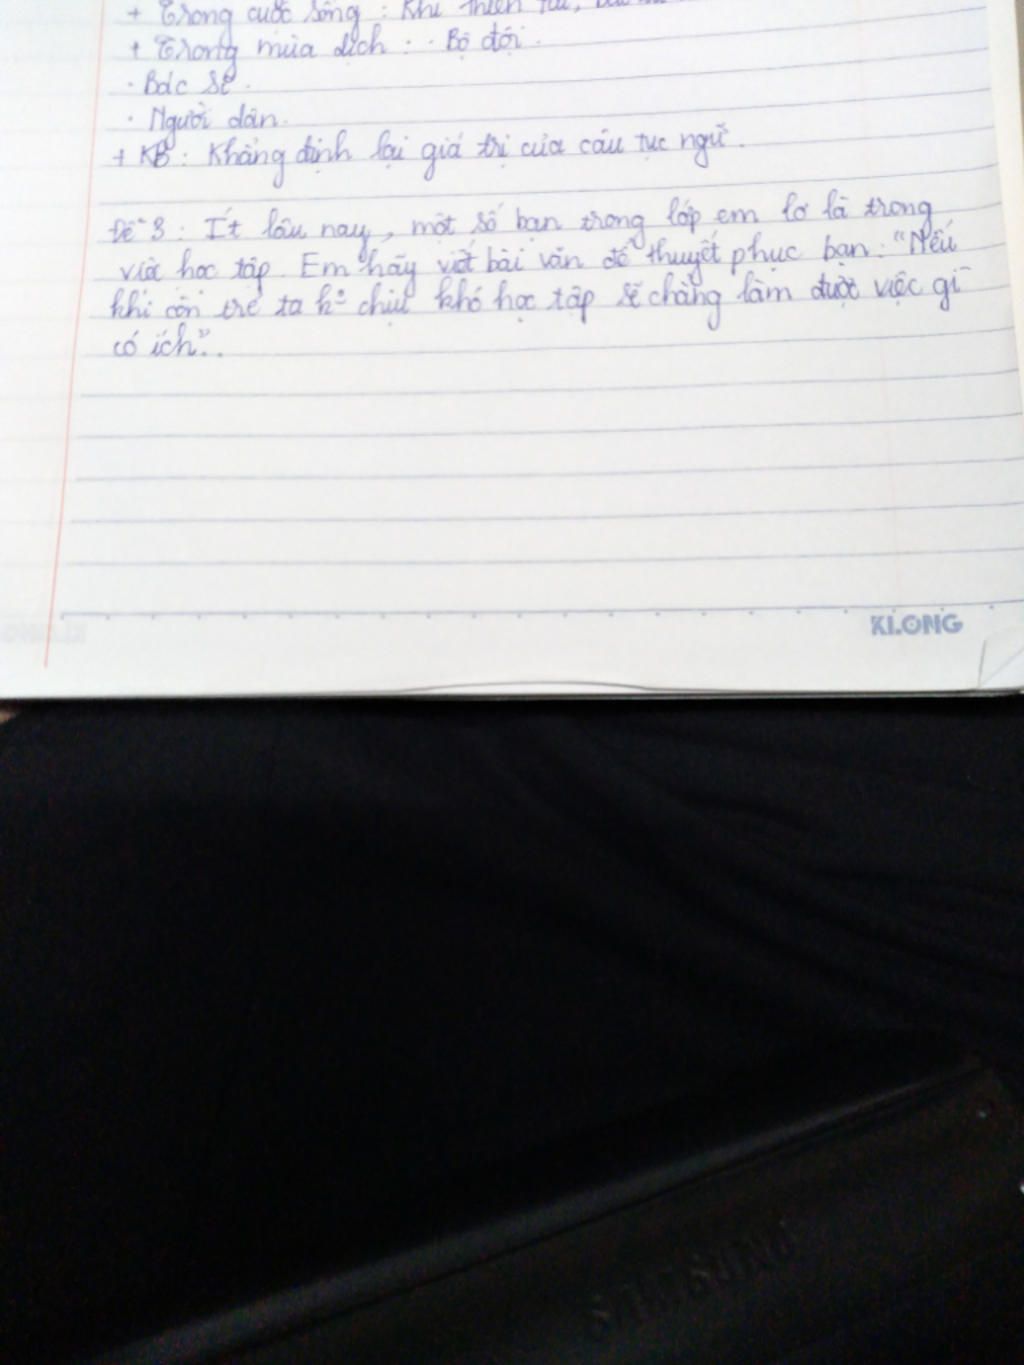 + Trong cuộc sống : Khi thiên tai,
+ Trong mùa dịch : · Bộ đội.
· Bác sĩ.
· Người dân.
+ KB : Khẳng định lại giá trị của câu tục ngữ.
Đề 3 : Ít lâu nay, một số bạn trong lớp em lơ là trong
việc học tập. Em hãy viết bài văn để thuyết phục bạn: "Nếu
khi còn trẻ ta k° chịu khó học tập sẽ chẳng làm được việc gì
có ích"..
KLONG
SAMSUNG